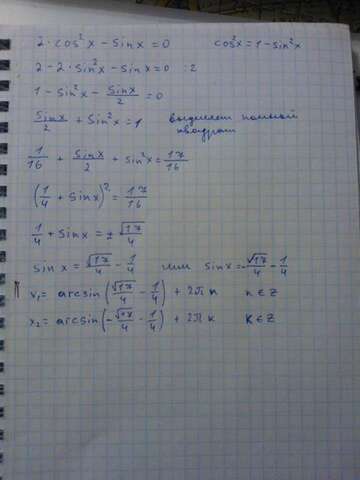 2·cos²x − sinx = 0 cos²x = 1 − sin²x
2 − 2·sin²x − sinx = 0 :2
1 − sin²x − sinx/2 = 0
sinx/2 + sin²x = 1 выделяем полный квадрат
1/16 + sinx/2 + sin²x = 17/16
(1/4 + sinx)² = 17/16
1/4 + sinx = ±√17/4
sinx = √17/4 − 1/4 или sinx = −√17/4 − 1/4
x₁ = arcsin(√17/4 − 1/4) + 2πn n ∈ Z
x₂ = arcsin(−√17/4 − 1/4) + 2πk k ∈ Z